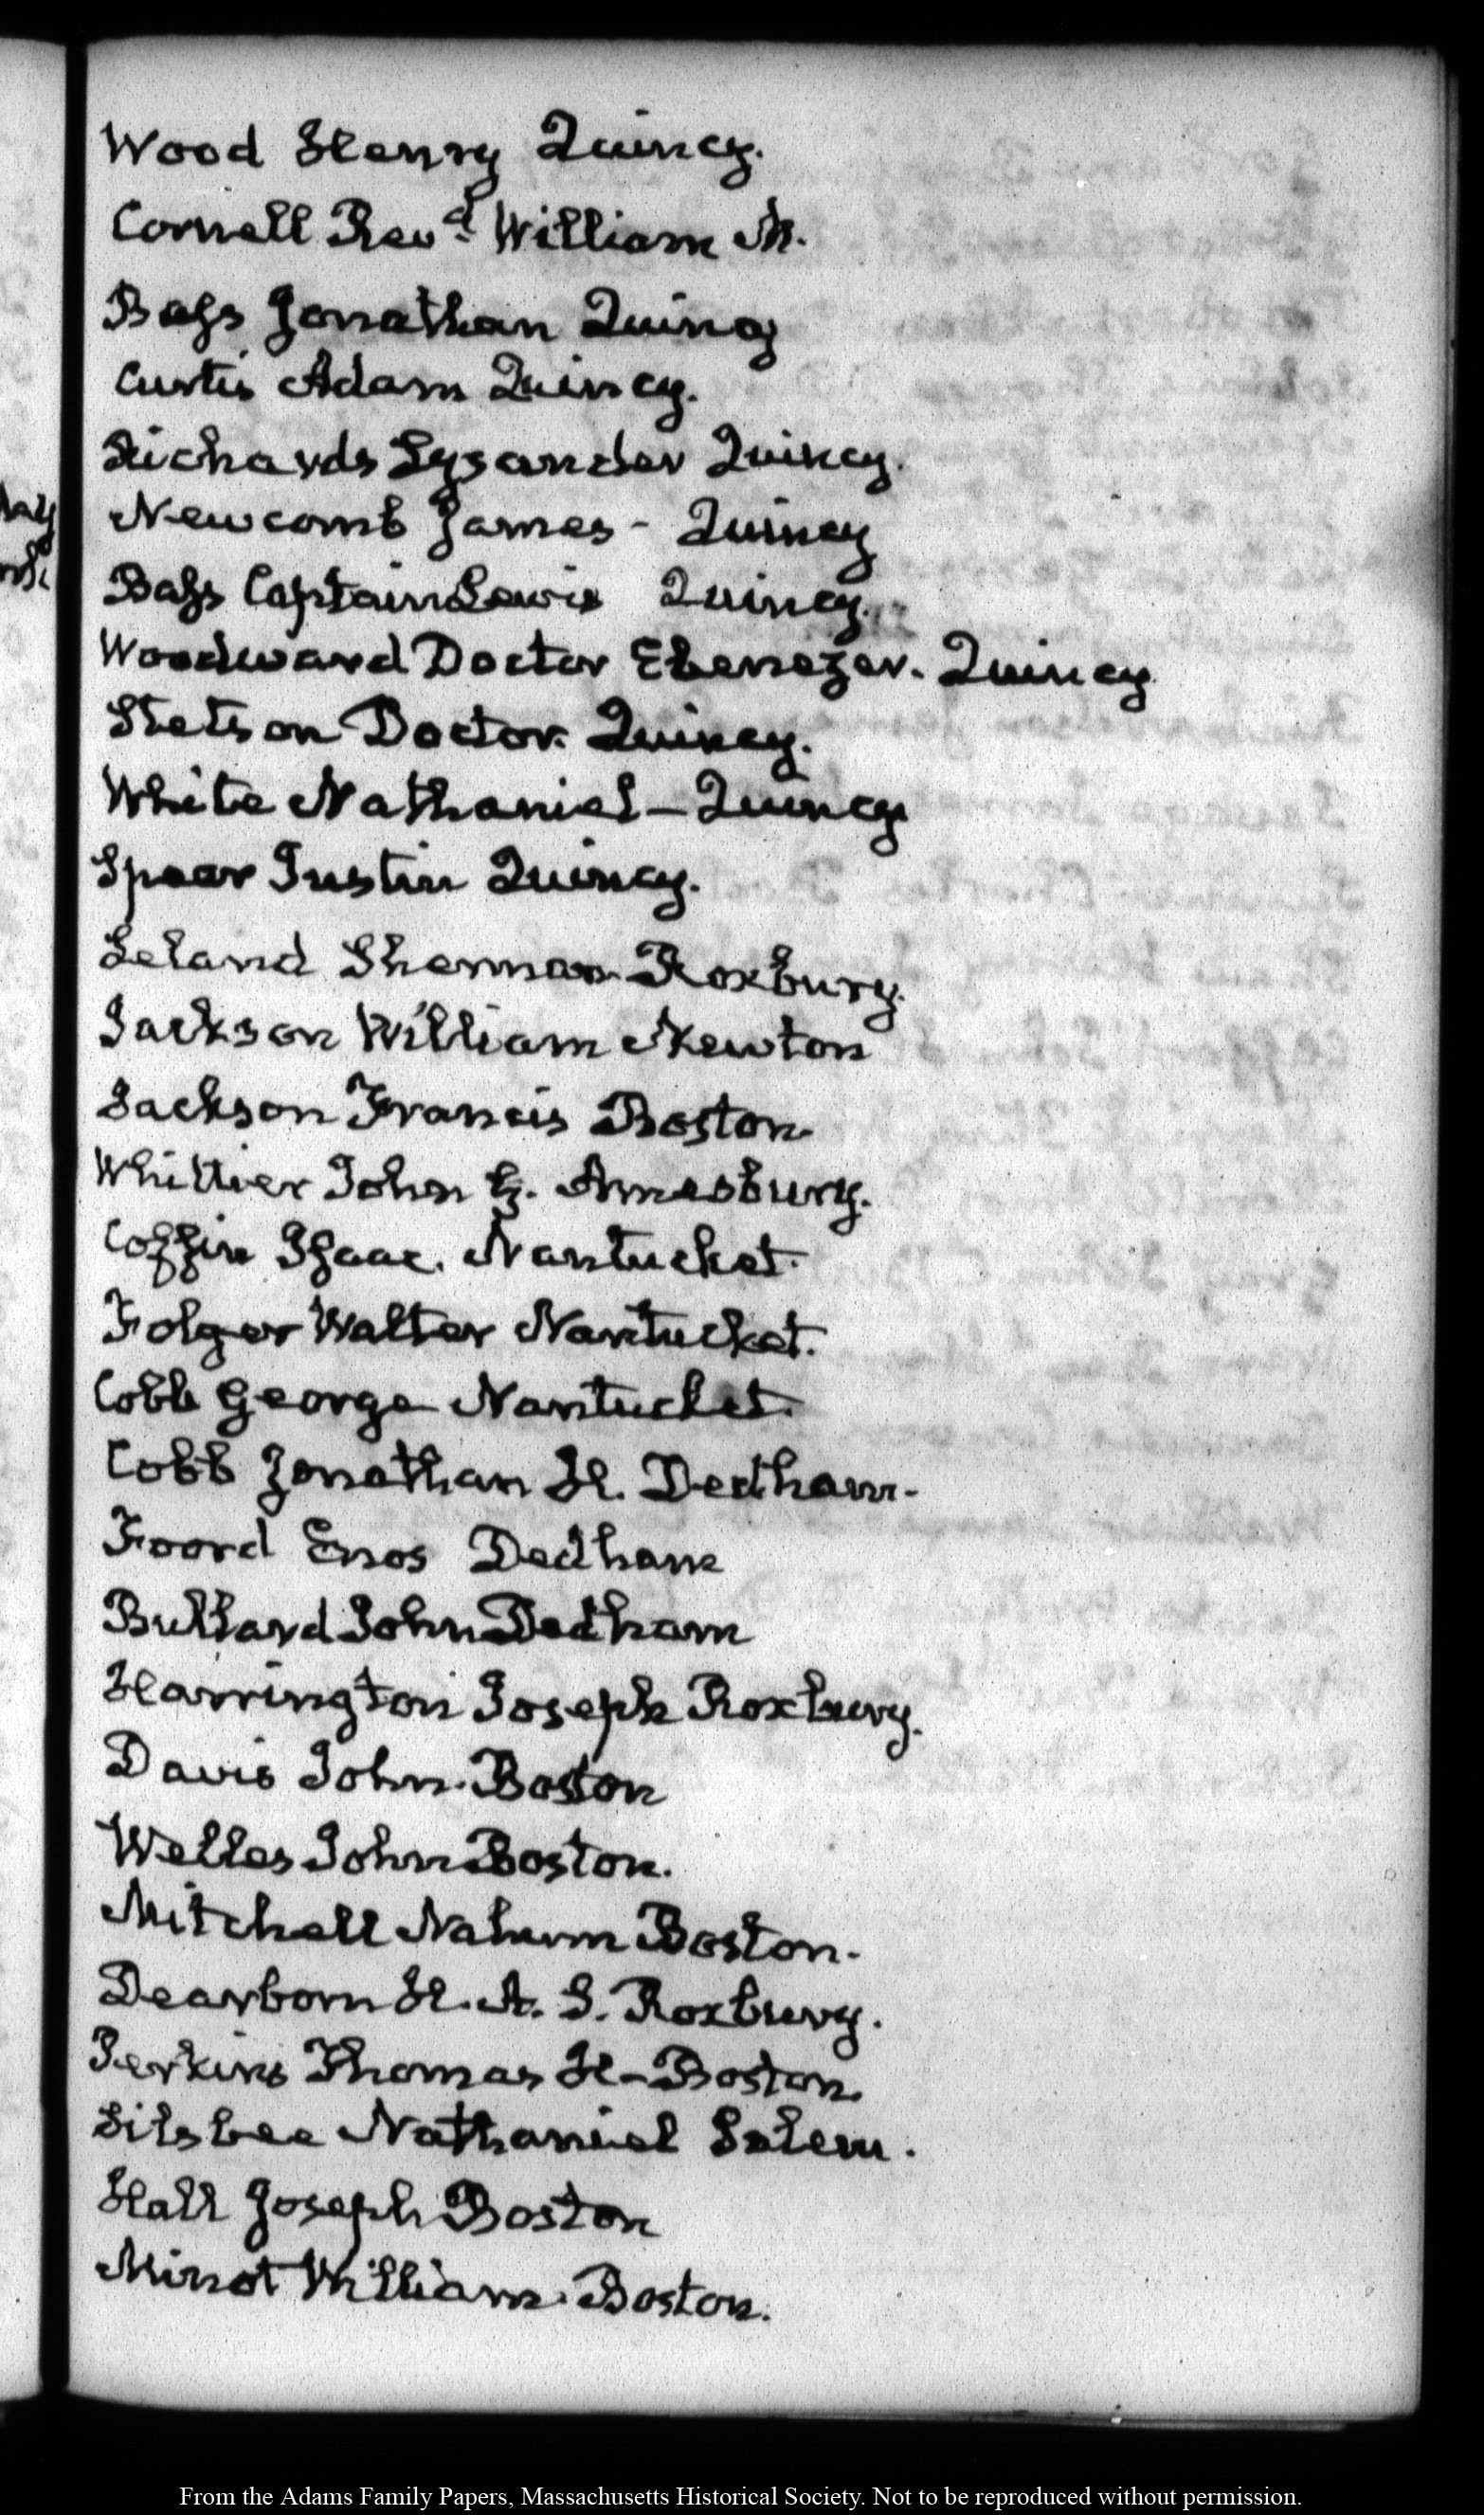 Wood Henry Quincy.
Cornell Revd. William M.
Bass Jonathan Quincy
Curtis Adam Quincy.
Richards Lysander Quincy.
Newcomb James - Quincy
Bass Captain Lewis Quincy.
Woodward Doctor Ebenezer. Quincy
Stetson Doctor. Quincy.
White Nathaniel - Quincy
Spear Justin Quincy.
Leland Sherman Roxbury.
Jackson William Newton
Jackson Francis Boston.
Whittier John G. Amesbury.
Coffin Isaac. Nantucket.
Folger Walter Nantucket.
Cobb George Nantucket.
Cobb Jonathan H. Dedham.
Foord Enos Dedham
Bullard John Dedham
Harrington Joseph Roxbury.
Davis John. Boston
Welles John Boston.
Mitchell Nahum Boston.
Dearborn H. A. S. Roxbury.
Perkins Thomas H - Boston.
Silsbee Nathaniel Salem.
Hall Joseph Boston
Minot William. Boston.
From the Adams Family Papers, Massachusetts Historical Society. Not to be reproduced without permission.